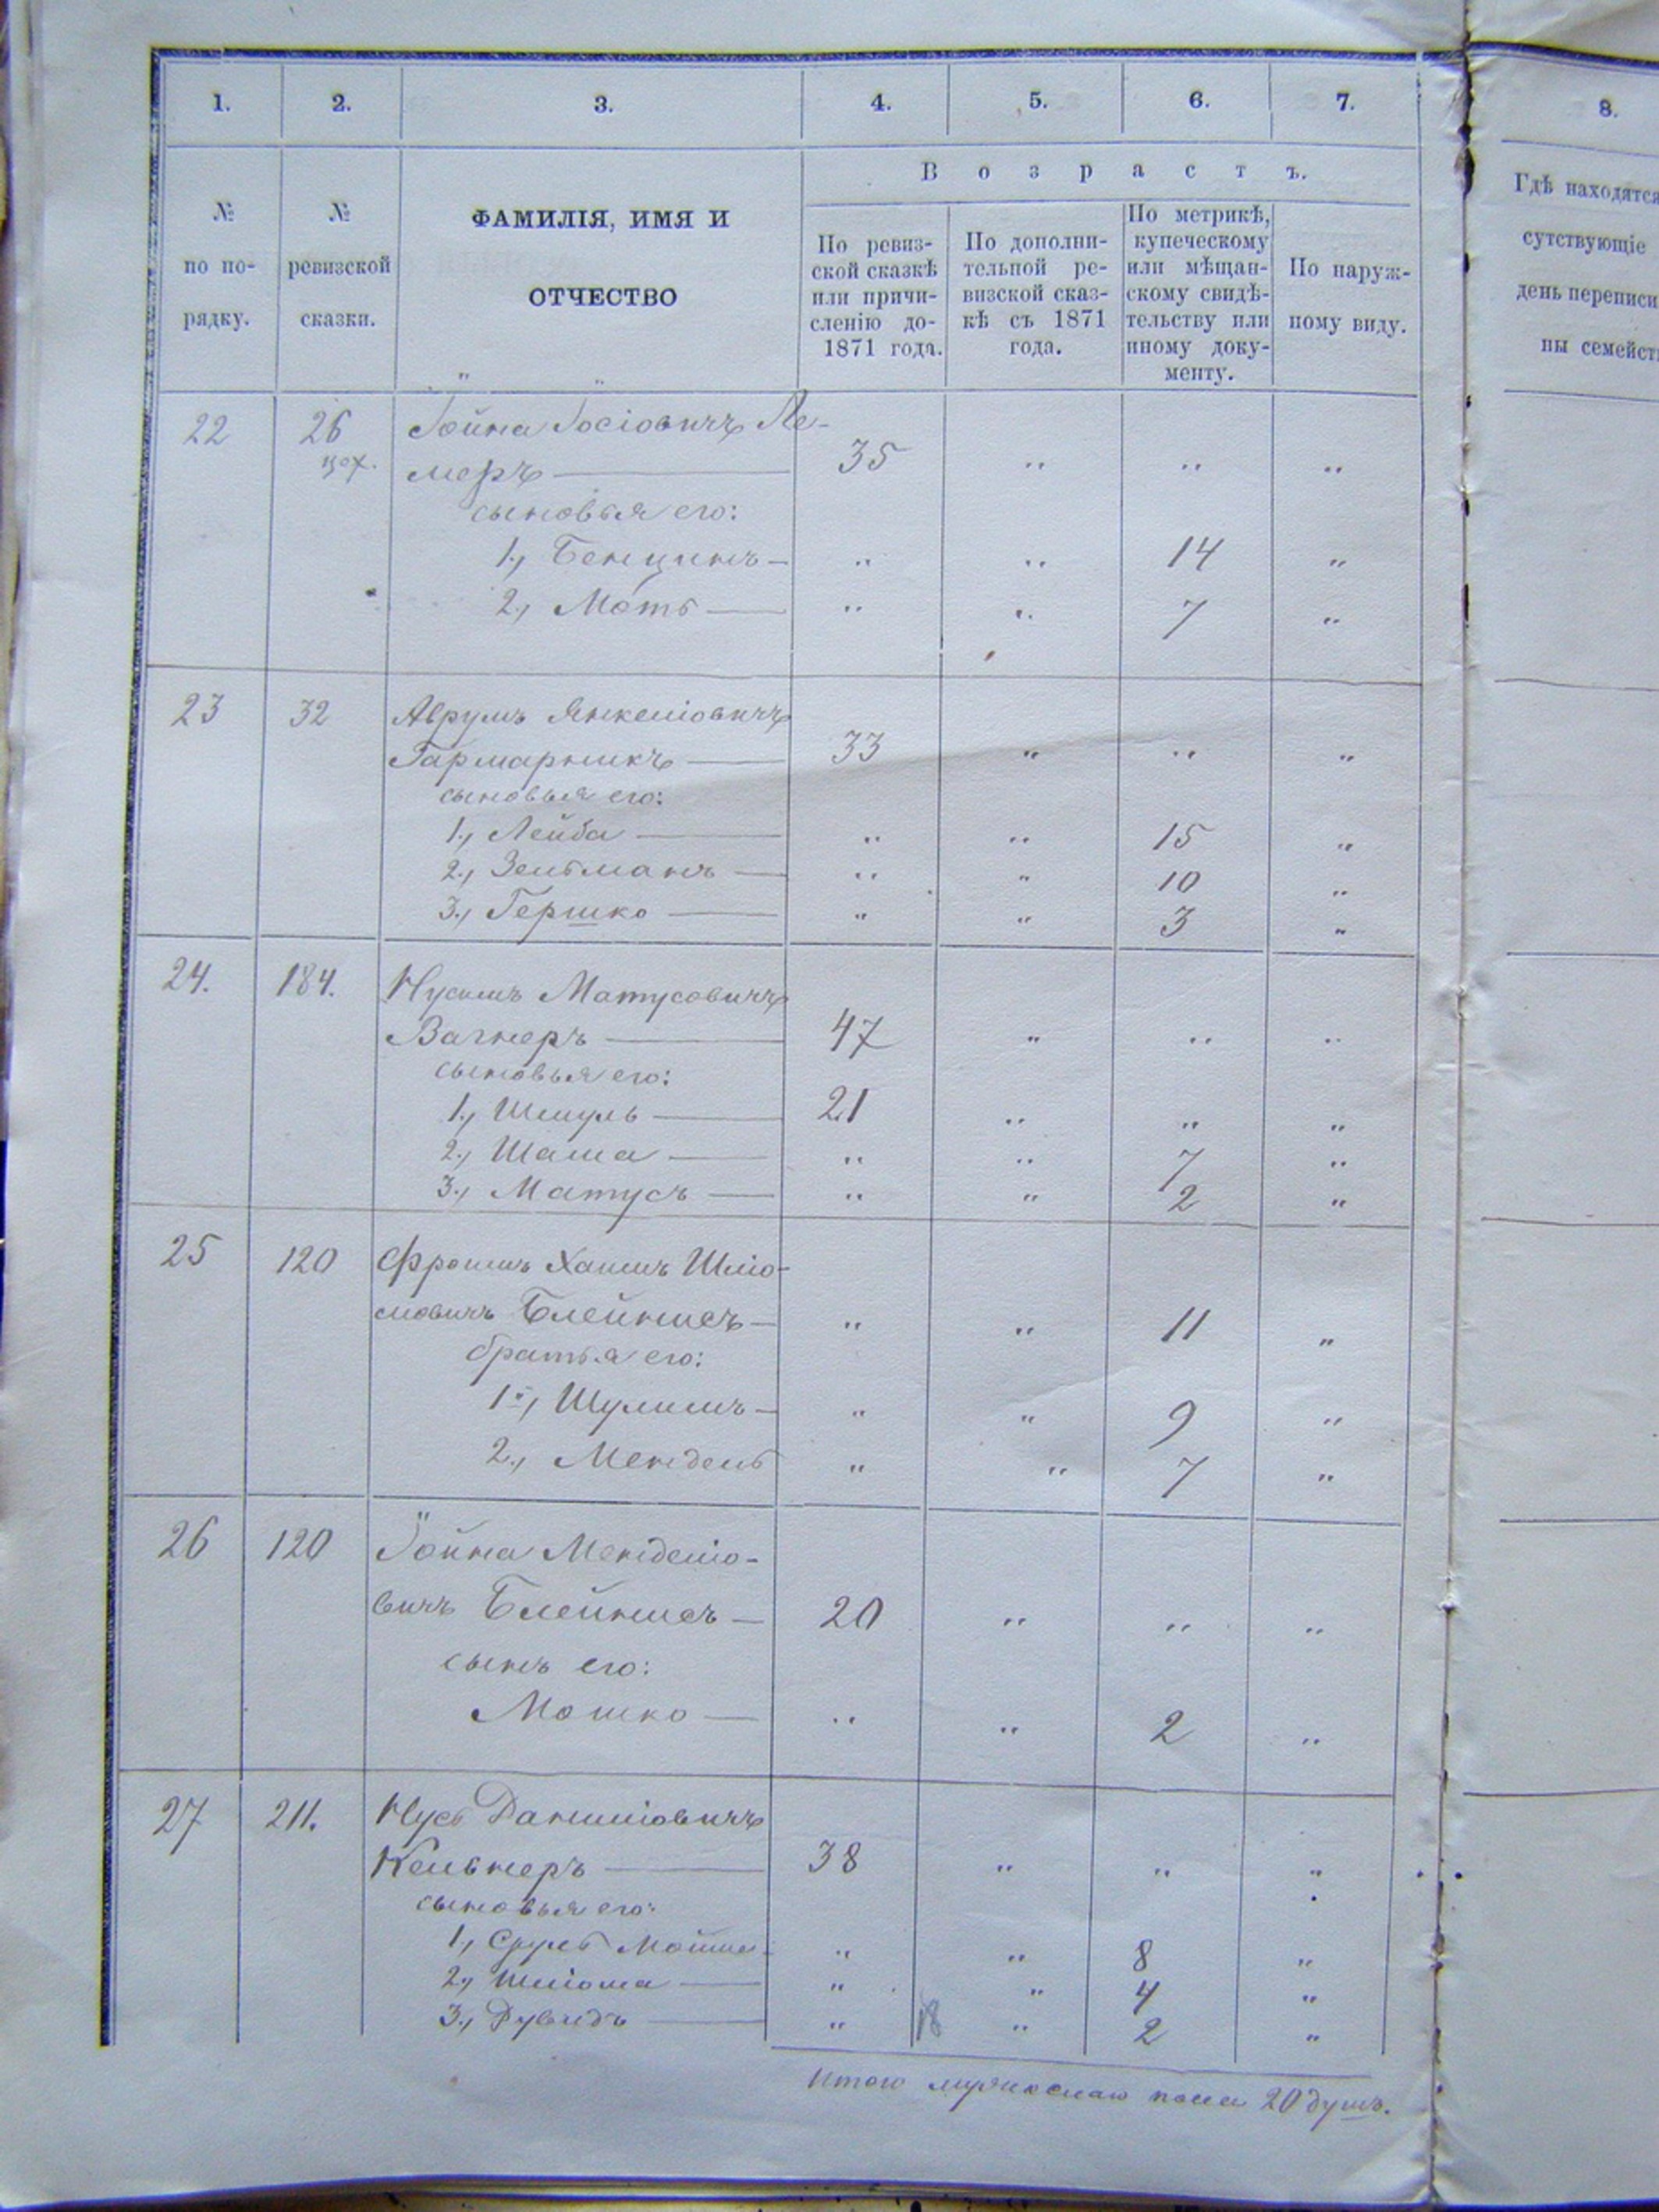 1. 2. 3. 4. 5. 6. 7. 8.
Возрастъ.
№ по по-рядку.
№ ревизской сказки.
ФАМИЛІЯ, ИМЯ И
ОТЧЕСТВО
По ревиз-
ской сказкѣ
или причи-
сленію до-
1871 года.
По дополни-
тельной ре-
визской сказ-
кѣ съ 1871
года.
По метрикѣ,
купеческому
или мѣщан-
скому свидѣ-
тельству или
иному доку-
менту.
По наруж-
ному виду.
Гдѣ находятся
сутствующіе
день переписи
ны семейств
22 26 Іойна Іосіовичъ Ле-
цех. меръ — 35 " " "
сыновья его:
1., Бенционъ — " " 14 "
2., Моть — " " 7 "
23 32 Аврумъ Янкеліовичъ
Гармарникъ — 33 " " "
сыновья его:
1., Лейба — " " 15 "
2., Зельманъ — " " 10 "
3., Гершко — " " 3 "
24. 184. Нусимъ Матусовичъ
Вагнеръ — 47 " " "
сыновья его:
1., Шмуль — 21 " " "
2., Шама — " " 7 "
3., Матусъ — " " 2 "
25 120 Фроимъ Хаимъ Шліо-
мовичъ Блейшисъ — " " 11 "
братья его:
1., Шулимъ — " " 9 "
2., Мендель " " 7 "
26 120 Іойна Менделіо-
вичъ Блейшисъ — 20 " " "
сынъ его:
Мошко — " " 2 "
27 211. Нусь Даниліовичъ
Кельнеръ — 38 " " "
сыновья его:
1., Сруль Мойше " " 8 "
2., Шліома — " " 4 "
3., Дувидъ — " " 2 "
18
Итого мужескаго пола 20 душъ.